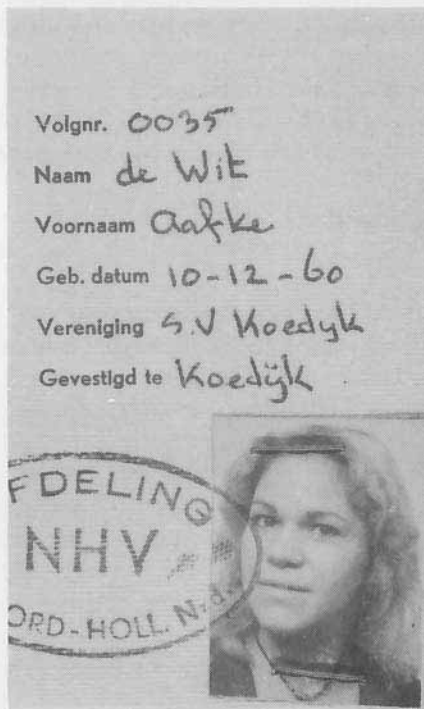 Volgnr. 0035
Naam de Wit
Voornaam Aafke
Geb. datum 10-12-60
Vereniging S.V Koedyk
Gevestigd te Koedijk
FDELING
NHV
ORD-HOLL. N.d.